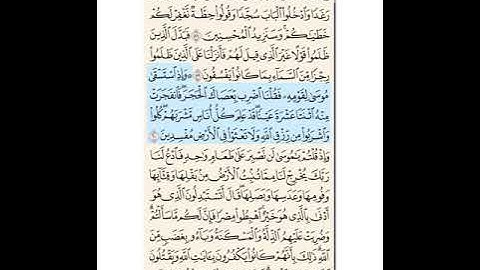 رَغَدًا وَٱدْخُلُوا۟ ٱلْبَابَ سُجَّدًا وَقُولُوا۟ حِطَّةٌ نَّغْفِرْ لَكُمْ
خَطَـٰيَـٰكُمْ ۚ وَسَنَزِيدُ ٱلْمُحْسِنِينَ ٥٨ فَبَدَّلَ ٱلَّذِينَ
ظَلَمُوا۟ قَوْلًا غَيْرَ ٱلَّذِى قِيلَ لَهُمْ فَأَنزَلْنَا عَلَى ٱلَّذِينَ ظَلَمُوا۟
رِجْزًا مِّنَ ٱلسَّمَآءِ بِمَا كَانُوا۟ يَفْسُقُونَ ٥٩ ۞ وَإِذِ ٱسْتَسْقَىٰ
مُوسَىٰ لِقَوْمِهِۦ فَقُلْنَا ٱضْرِب بِّعَصَاكَ ٱلْحَجَرَ ۖ فَٱنفَجَرَتْ
مِنْهُ ٱثْنَتَا عَشْرَةَ عَيْنًا ۖ قَدْ عَلِمَ كُلُّ أُنَاسٍ مَّشْرَبَهُمْ ۖ كُلُوا۟
وَٱشْرَبُوا۟ مِن رِّزْقِ ٱللَّهِ وَلَا تَعْثَوْا۟ فِى ٱلْأَرْضِ مُفْسِدِينَ ٦٠
وَإِذْ قُلْتُمْ يَـٰمُوسَىٰ لَن نَّصْبِرَ عَلَىٰ طَعَامٍ وَٰحِدٍ فَٱدْعُ لَنَا
رَبَّكَ يُخْرِجْ لَنَا مِمَّا تُنۢبِتُ ٱلْأَرْضُ مِنۢ بَقْلِهَا وَقِثَّآئِهَا
وَفُومِهَا وَعَدَسِهَا وَبَصَلِهَا ۖ قَالَ أَتَسْتَبْدِلُونَ ٱلَّذِى هُوَ
أَدْنَىٰ بِٱلَّذِى هُوَ خَيْرٌ ۚ ٱهْبِطُوا۟ مِصْرًا فَإِنَّ لَكُم مَّا سَأَلْتُمْ ۗ
وَضُرِبَتْ عَلَيْهِمُ ٱلذِّلَّةُ وَٱلْمَسْكَنَةُ وَبَآءُو بِغَضَبٍ مِّنَ
ٱللَّهِ ۗ ذَٰلِكَ بِأَنَّهُمْ كَانُوا۟ يَكْفُرُونَ بِـَٔايَـٰتِ ٱللَّهِ وَيَقْتُلُونَ